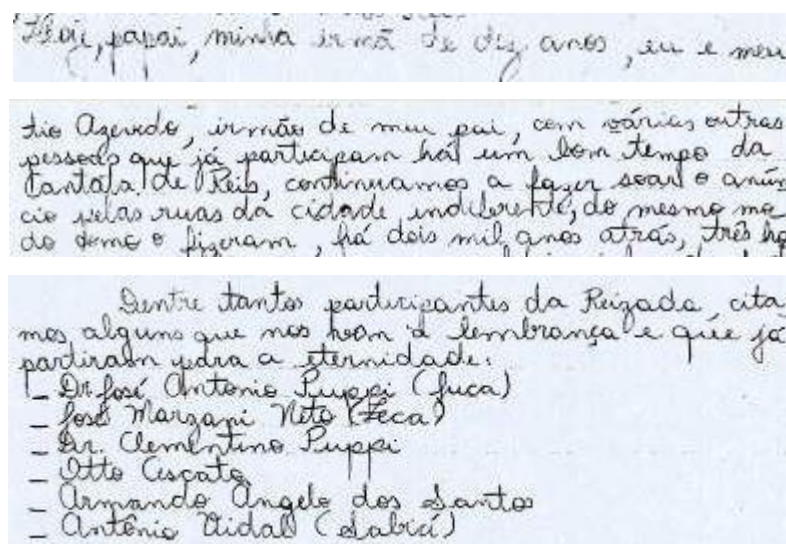 Hoje, papai, minha irmã de dez anos, eu e meu
tio Azevedo, irmão de meu pai, com várias outras
pessoas que já participam há um bom tempo da
Cantata de Reis, continuamos a fazer soar o anún
cio pelas ruas da cidade indiferente, do mesmo mo
do como o fizeram, há dois mil anos atrás, três ho
Dentre tantos participantes da Reizada, cita
mos alguns que nos vem à lembrança e que já
partiram para a eternidade:
- Dr. José Antonio Puppi (Juca)
- José Marzani Neto (Zeca)
- Dr. Clementino Puppi
- Otto Cescato
- Armando Angelo dos Santos
- Antônio Vidal (Sabiá)